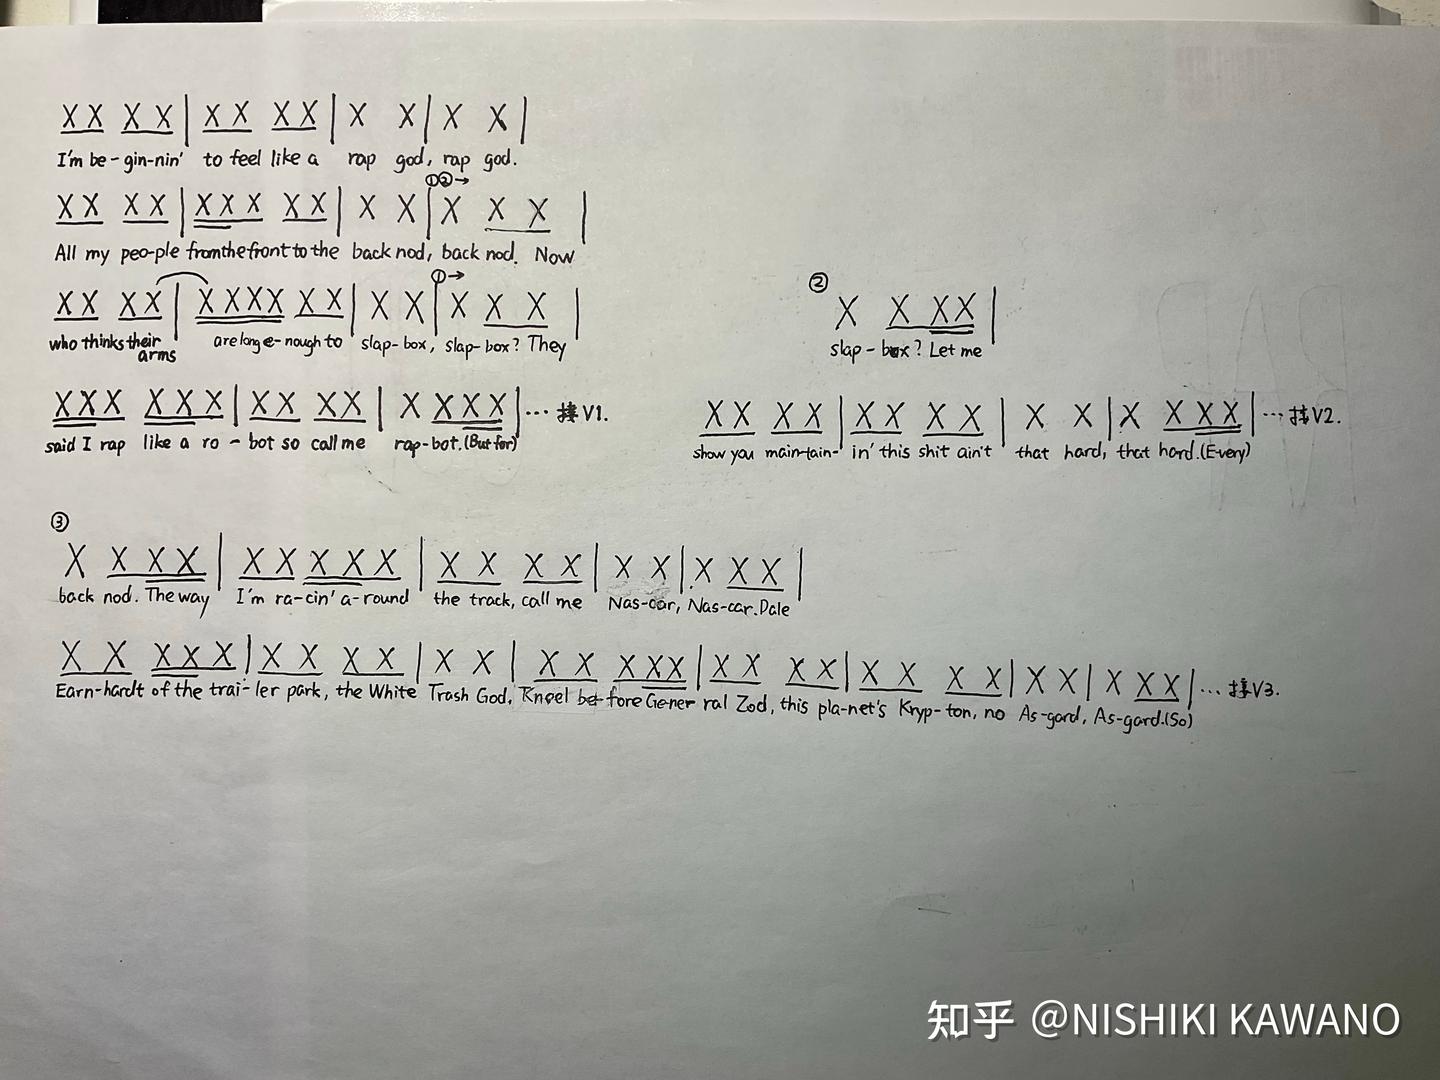 X X X X | X X X X | X X | X X |
I'm be-gin-nin' to feel like a rap god, rap god.
①②→
X X X X | X X X X X | X X | X X X |
All my peo-ple from the front to the back nod, back nod. Now
①→
X X X X | X X X X X X | X X | X X X |
who thinks their arms are long e-nough to slap-box, slap-box? They
X X X X X X | X X X X | X X X X | ... 接V1.
said I rap like a ro-bot so call me rap-bot. (But for)
②
X X X X |
slap-box? Let me
X X X X | X X X X | X X | X X X X | ... 接V2.
show you main-tain-in' this shit ain't that hard, that hard. (Every)
③
X X X X | X X X X X | X X X X | X X | X X X |
back nod. The way I'm ra-cin' a-round the track, call me Nas-car, Nas-car. Dale
X X X X X | X X X X | X X | X X X X X | X X X X | X X X X | X X | X X X | ... 接V3.
Earn-hardt of the trai-ler park, the White Trash God. Kneel be-fore Gener ral Zod, this pla-net's Kryp-ton, no As-gard, As-gard. (So)
知乎 @NISHIKI KAWANO